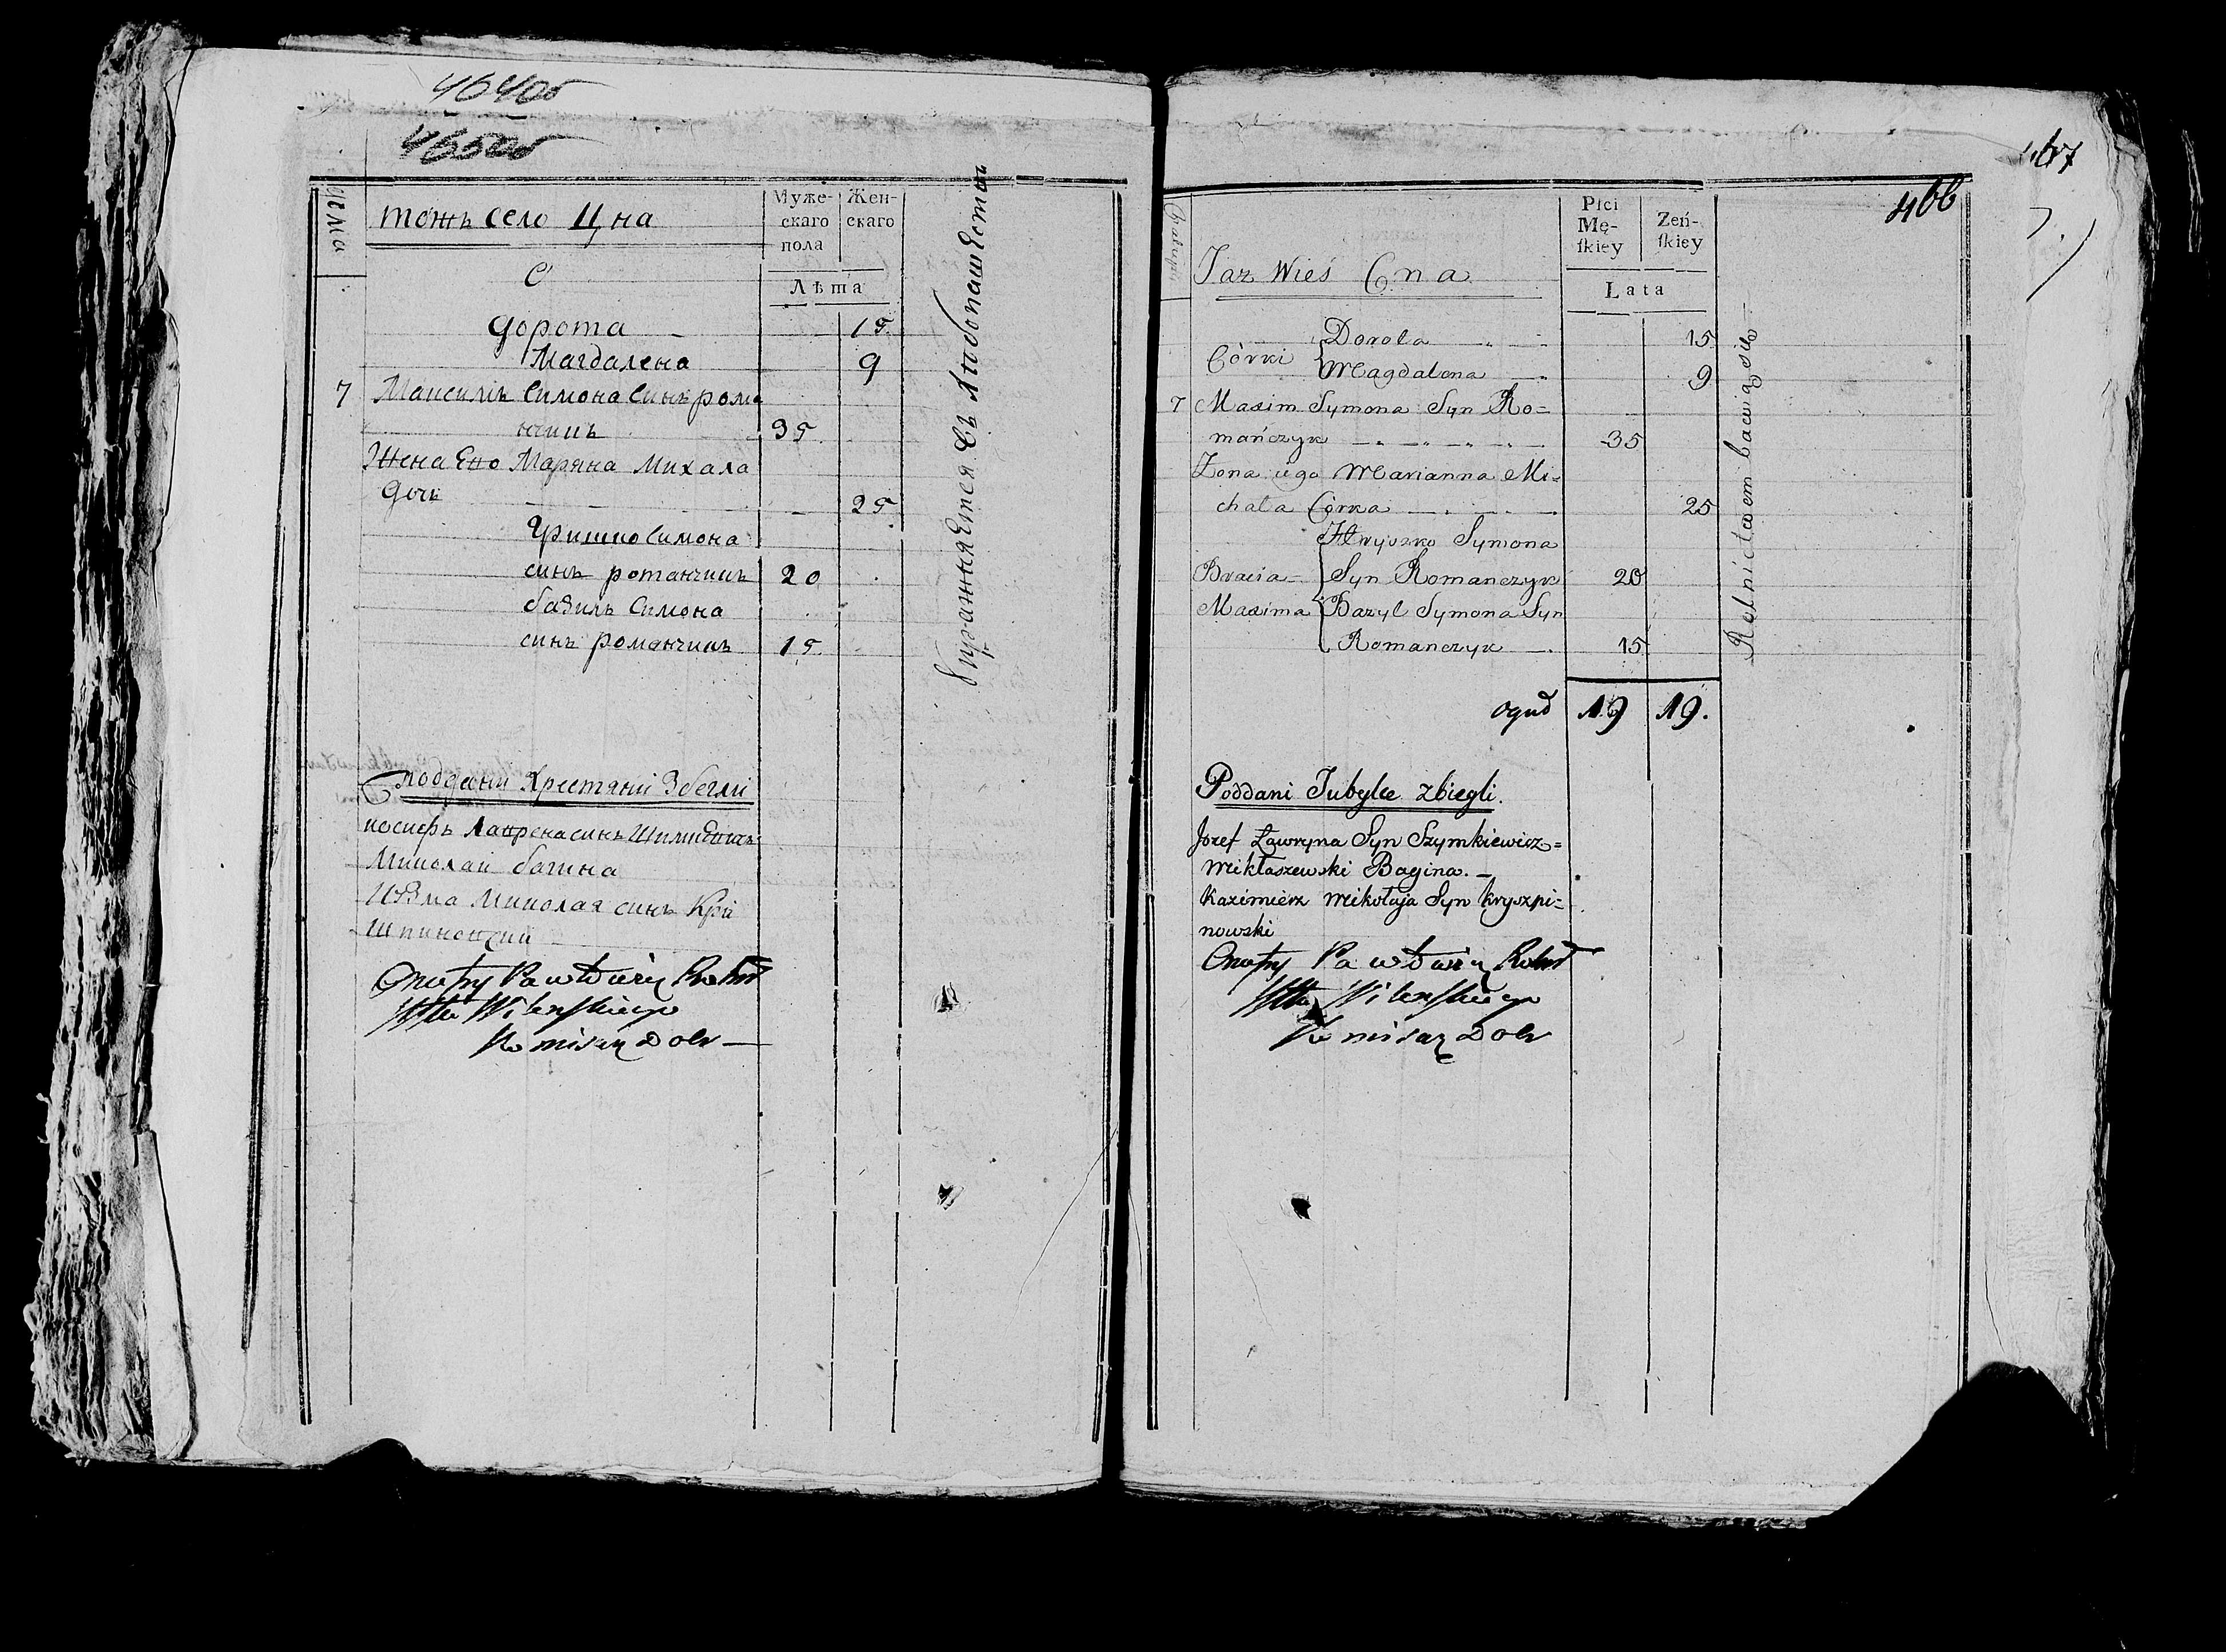 464об
465об
тожъ село Цна
Муже-
скаго
пола
Жен-
скаго
Лѣта
Дорота 15
Магдалена 9
7 Максимъ Симона Синъ рома
нчикъ 35
Жена Его Маряна Михала
Дочь 25
Гришко Симона
синъ романчикъ 20
базиль Симона
синъ романчикъ 15
упражняется въ хлебопашестве
поддани Крестяни Збегли
иосифъ Лавренасинъ Шимкевичъ
Миколай багина
Миколая синъ Кри
шпиновский
Onufry
Wilenskiego
Komisarz Dobr
467
466
Taz Wieś Cna
Płci
Mę-
skiey
Zeń-
skiey
Lata
Dorota 15
Córki Magdalena 9
7 Maxim Symona Syn Ro=
mańczyk 35
Zona iego Marianna Mi=
chala Córka 25
Hryszko Symona
Bracia Syn Romanczyk 20
Maxima Bazyl Symona Syn
Romanczyk 15
Rolnictwem bawią się
ogud 19 19.
Poddani Tubylce zbiegli.
Jozef Ławryna Syn Szymkiewicz=
Mikłaszewski Bagina.
Kazimierz Mikołaja Syn Kryszpi=
nowski
Onufry
Wilenskiego
Komisarz Dobr